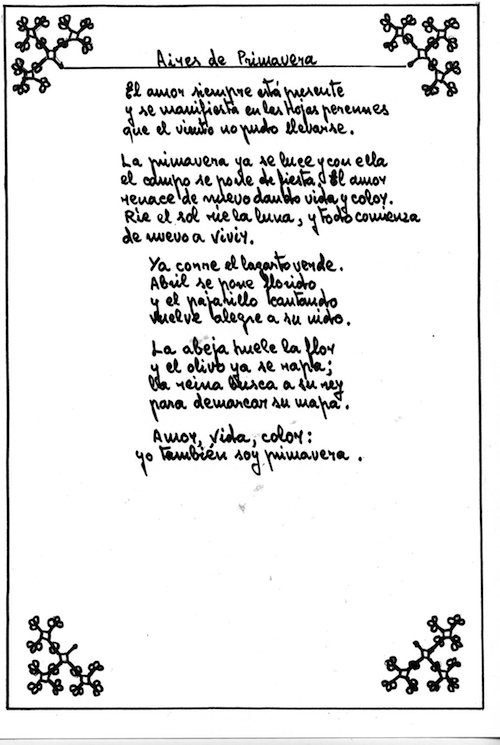 Aires de Primavera
El amor siempre está presente
y se manifiesta en las Hojas perennes
que el viento no pudo llevarse.
La primavera ya se luce y con ella
el campo se pone de fiesta. El amor
renace de nuevo dando vida y color.
Rie el sol rie la luna, y todo comienza
de nuevo a vivir.
Ya corre el lagarto verde.
Abril se pone florido
y el pajarillo cantando
vuelve alegre a su nido.
La abeja huele la flor
y el olivo ya se rapa;
la reina busca a su rey
para demarcar su mapa.
Amor, vida, color:
yo también soy primavera.